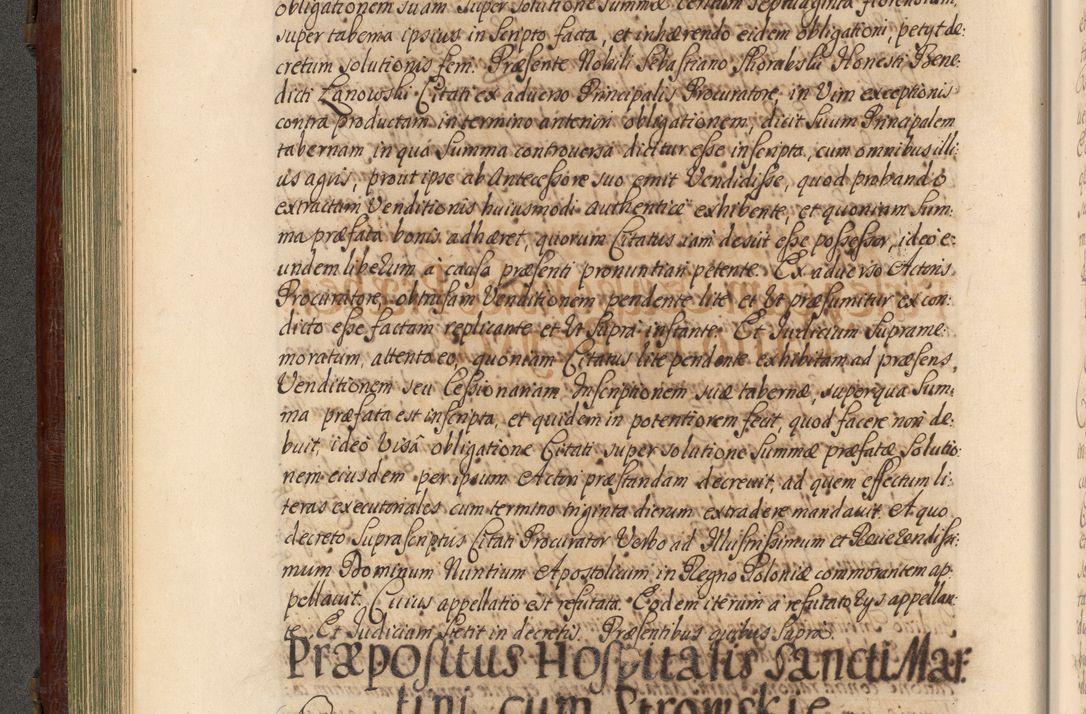 obligationem suam super solutione summæ certum septuaginta florenorum,
super taberna ipsius in scripto facta, et inhærendo eidem obligationi, petyt de:
cretum solutionis ferri. Præsente Nobili Sebastiano Skorabski Honesti Bene:
dicti Zanowski Citati ex adverso Principalis Procuratore, in Vim exceptionis
contra productam in termino anteriori obligationem, dicit Suum Principalem
tabernam, in qua Summa controversa dicitur esse inscripta, cum omnibus illi:
us agris, prout ipse ab Antecessore suo emit Vendidisse, quod probando
extractum Venditionis huiusmodi authenticæ exhibente, et quoniam Sum:
ma præfata bonis adhæret, quorum Citatus iam desiit esse possessor, ideo e:
undem liberum à causa præsenti pronuntiari petente. Ex adverso Actoris
Procuratore, obtrusam Venditionem pendente lite et Ut præsumitur ex con:
dicto esse factam replicante et Ut Supra instante. Et Iudicium Suprame
moratum, attento eo, quoniam Citatus lite pendente exhibitam ad præsens,
Venditionem seu Cessionariam Inscriptionem suæ tabernæ, super qua Sum:
ma præfata est inscripta, et quidem in potentiorem fecit, quod facere non de:
buit, ideo Visâ obligatione Citati super solutione Summæ præfatæ Solutio:
nem eiusdem per ipsum Actori præstandam decrevit, ad quem effectum li:
teras executoriales cum termino triginta dierum extradere mandavit. A quo
decreto Suprascriptus Citati Procurator Verbo ad Illustrissimum et Reverendissi:
mum Dominum Nuntium Apostolicum in Regno Poloniæ commorantem ap:
pellavit. Cuius appellatio est refutata. Eodem iterum a refutatorys appellan:
te. Et Iudicium Stetit in decretis. Præsentibus quibus Supra.
Præpositus Hospitalis Sancti Mar:
tini cum Stromskie